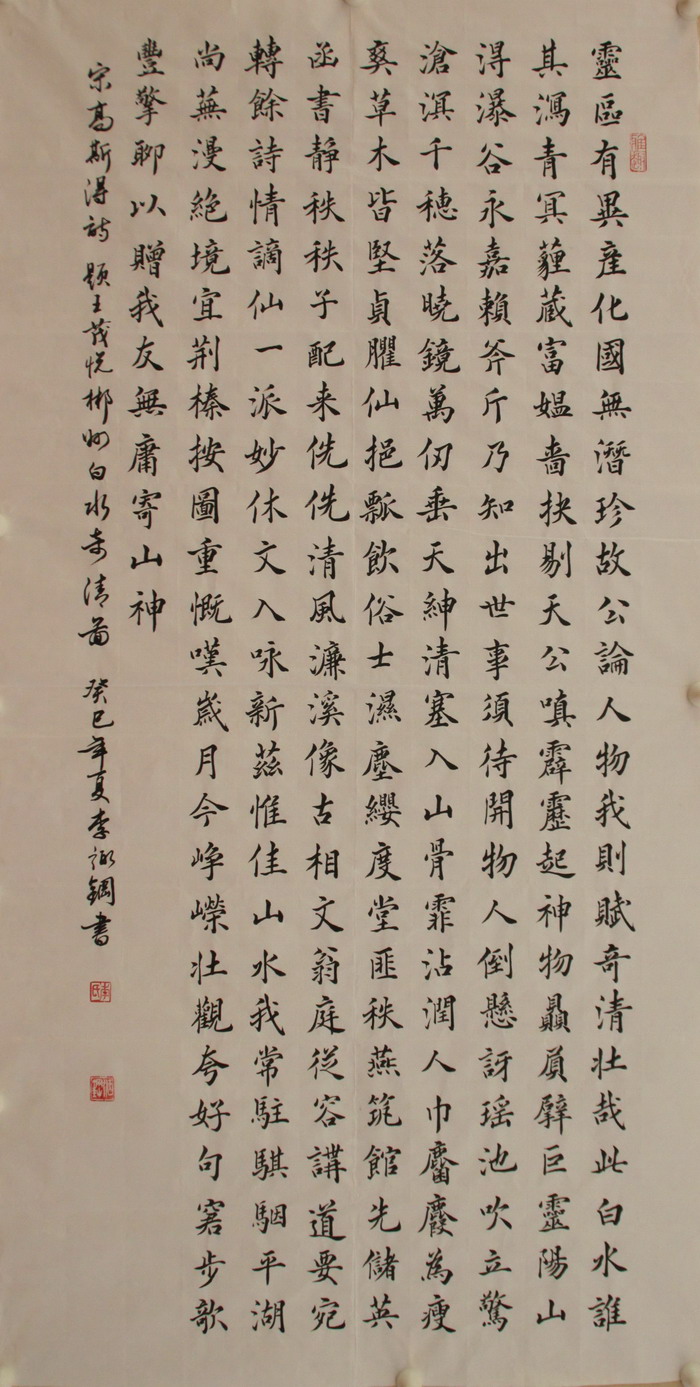 靈區有異産化國無潛珍故公論人物我則賦奇清壯哉此白水誰
其瀉青冥薶蔵富媼嗇抉剔天公嗔霹靂起神物贔屓擘巨靈陽山
浔瀑谷永嘉賴斧斤乃知出世事須待開物人倒懸訝瑶池吹立驚
滄溟千穗落曉鏡萬仞垂天紳清塞入山骨霏沾潤人巾麕麚為瘦
爽草木皆堅貞臞仙挹瓢飲俗士濕塵纓度堂匪秩燕筑館先儲英
函書静秩秩子配来侁侁清風濂溪像古相文翁庭従容講道要宛
轉餘詩情謫仙一派妙休文入咏新茲惟佳山水我常駐騏駰平湖
尚蕪漫絕境宜荆榛按圖重慨嘆歲月今崢嶸壮觀夸好句窘步歌
豐擎聊以贈我友無庸寄山神
宋高斯浔詩 題王茂悦郴州白水奇清圖 癸巳年夏李詠鋼書